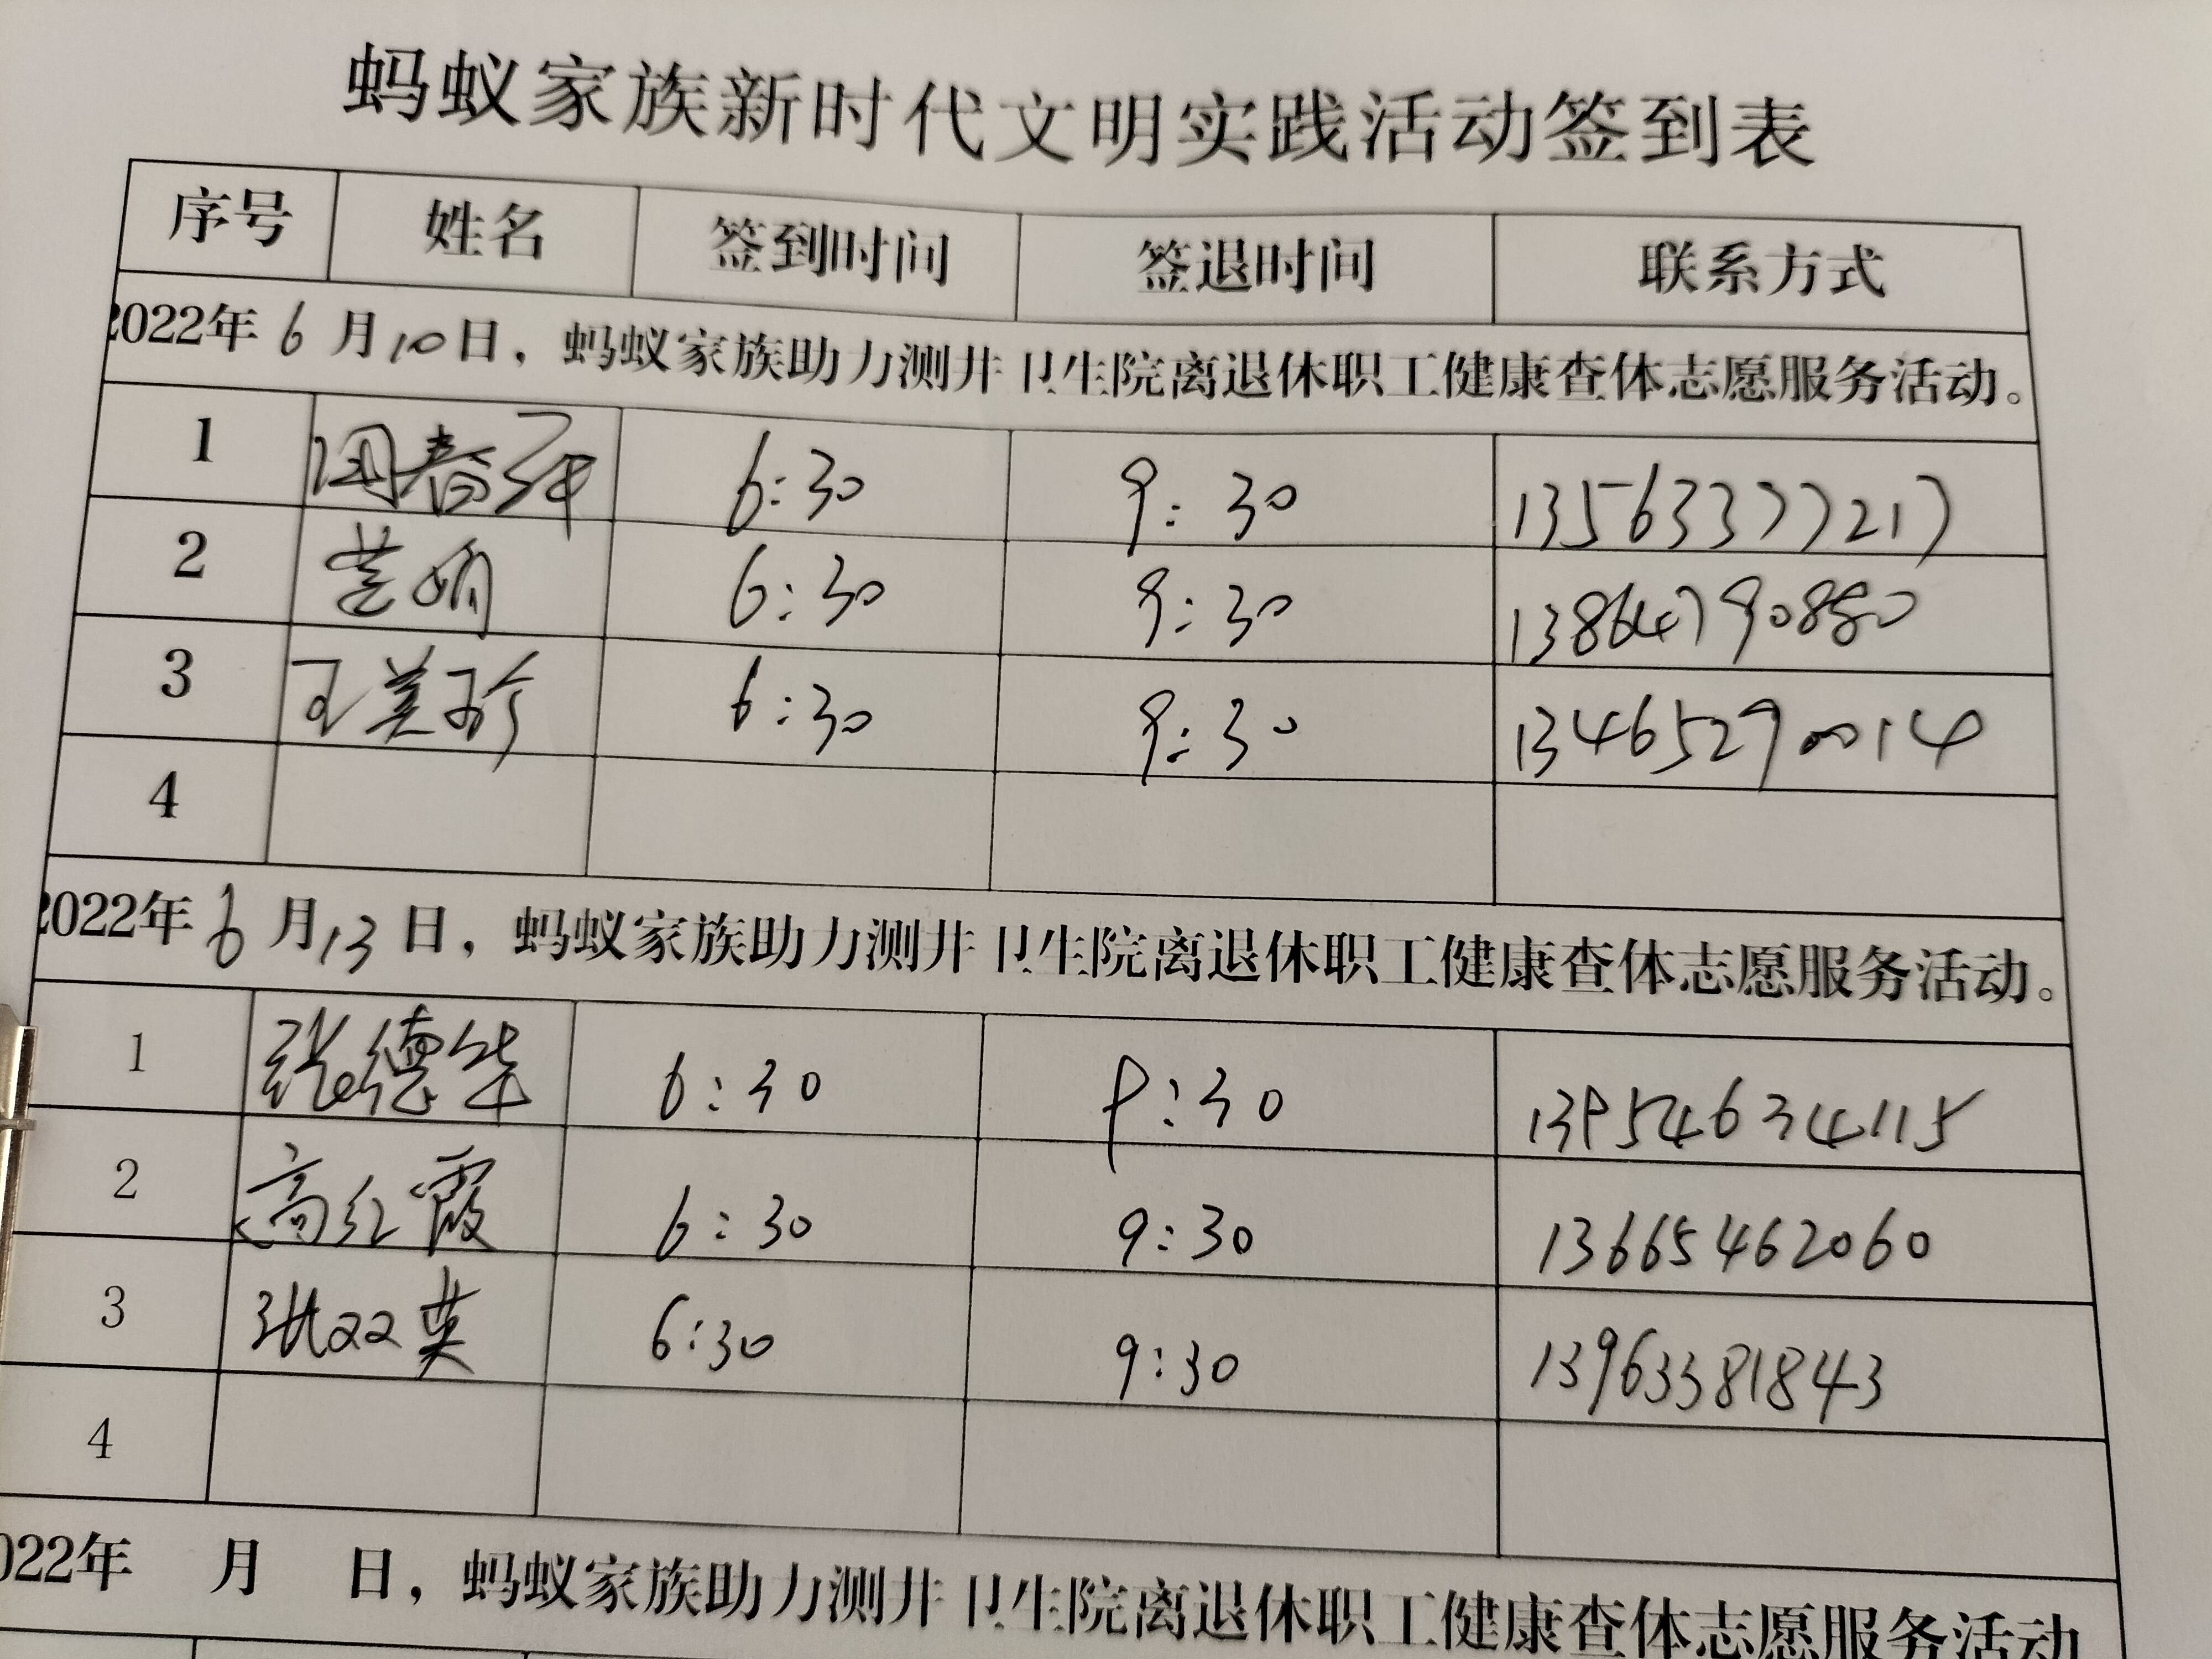 蚂蚁家族新时代文明实践活动签到表
序号 姓名 签到时间 签退时间 联系方式
2022年6月10日，蚂蚁家族助力测井卫生院离退休职工健康查体志愿服务活动。
1 6:30 9:30 13563377217
2 6:30 9:30 13864790880
3 王美珍 6:30 9:30 13465290014
4
2022年6月13日，蚂蚁家族助力测井卫生院离退休职工健康查体志愿服务活动。
1 张德华 6:30 9:30 13954634115
2 高红霞 6:30 9:30 13665462060
3 张双英 6:30 9:30 13963381843
4
022年 月 日，蚂蚁家族助力测井卫生院离退休职工健康查体志愿服务活动